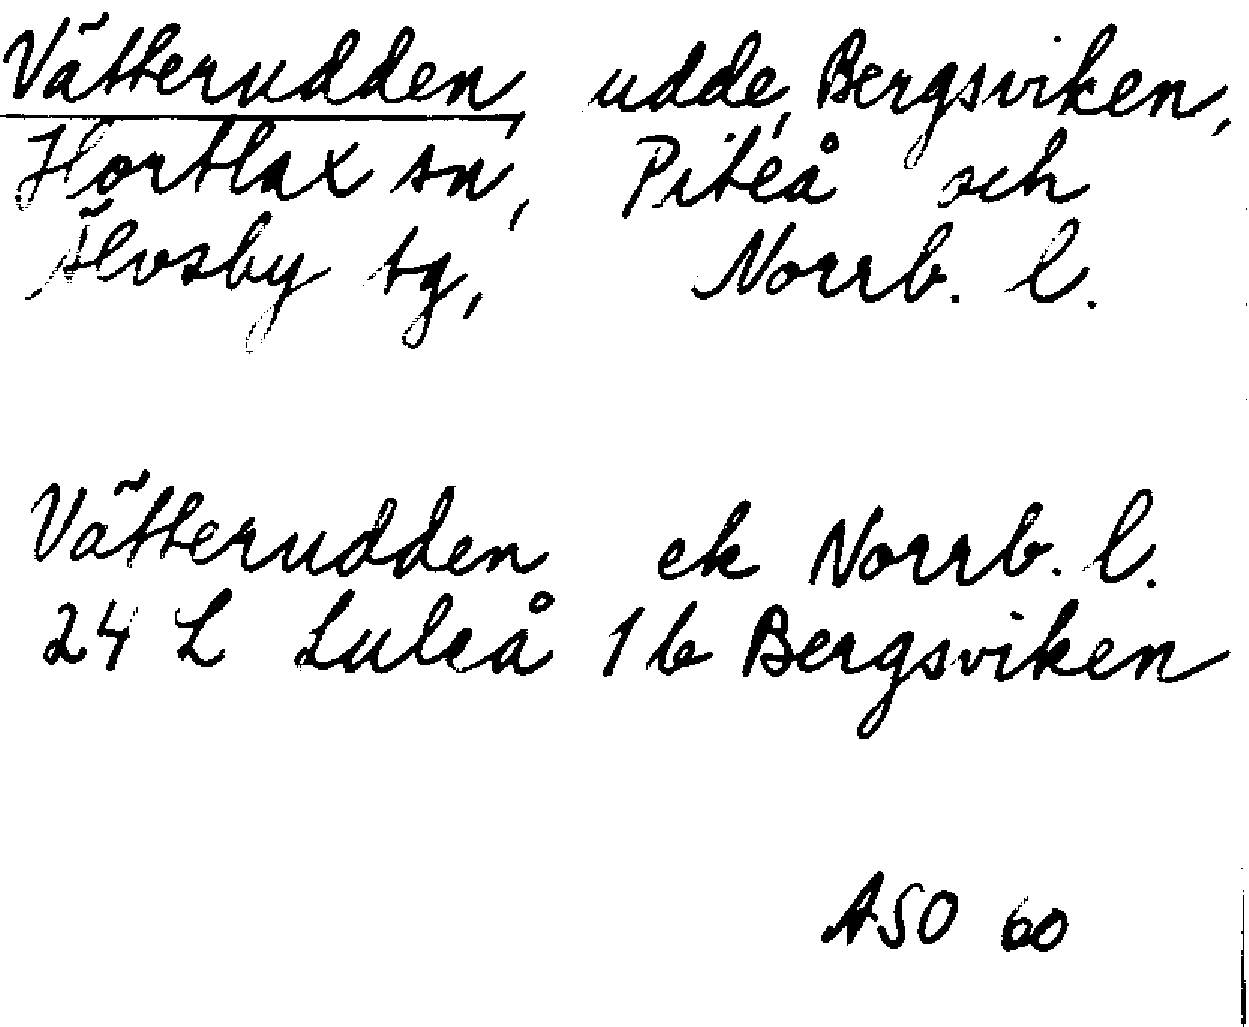 Vätterudden, udde, Bergsviken,
Hortlax sn, Piteå och
Älvsby tg, Norrb. l.
Vätterudden ek Norrb. l.
24 L Luleå 1b Bergsviken
ASO 60